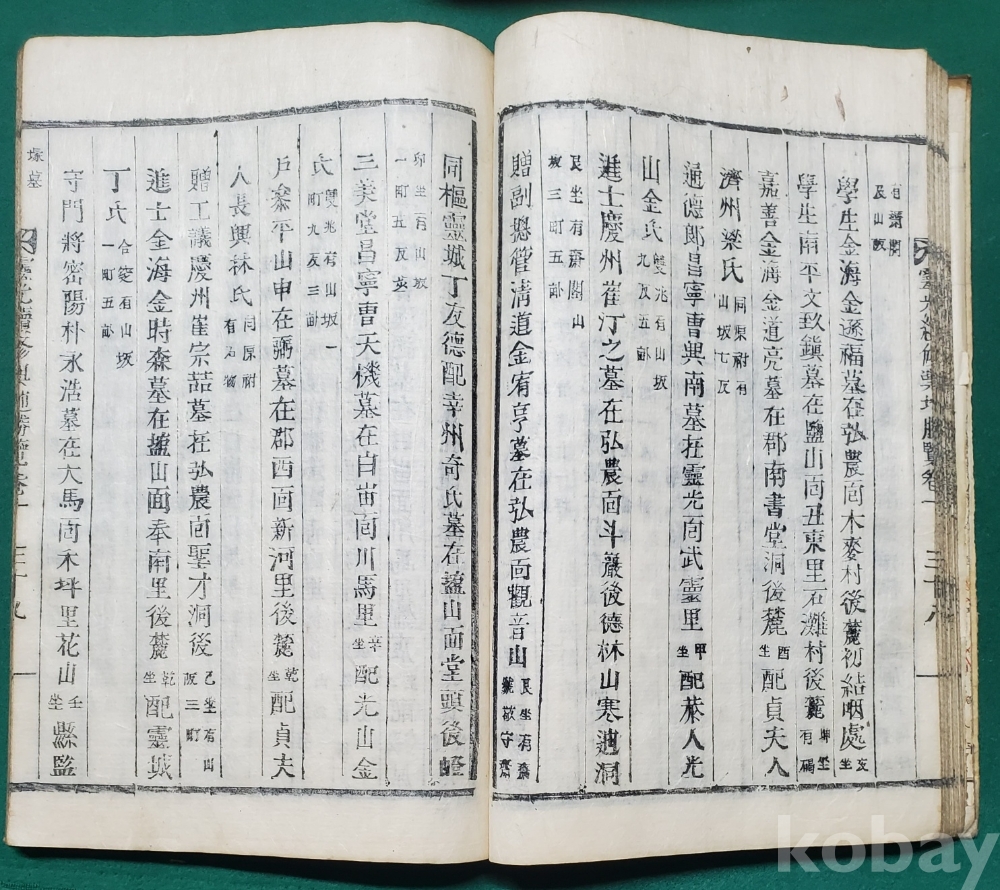 有齋閣及山坂
學生金海金遜福墓在弘農面木麥村後麓初結咽處亥坐
學生南平文致鎭墓在鹽山面丑東里石灘村後麓坤坐有碣
嘉善金海金道亮墓在郡南書堂洞後麓酉坐配貞夫人
濟州梁氏同原祔有山坂七反
通德郎昌寧曹興南墓在靈光面武靈里甲坐配恭人光
山金氏雙兆有山坂九反五畝
進士慶州崔汀之墓在弘農面斗巖後德林山寒洞
艮坐有齋閣山坂三町五畝
贈副摠管淸道金宥亨墓在弘農面觀音山艮坐有齋號敬守齋
靈光續修輿地勝覽卷一 三十八
同樞靈城丁友德配幸州奇氏墓在鹽山面堂頭後嶝
卯坐有山坂一町五反
三美堂昌寧曹天機墓在白岫面川馬里辛坐配光山金
氏雙兆有山坂一町九反三畝
戶參平山申在弼墓在郡西面新河里後麓乾坐配貞夫
人長興林氏同原祔有石物
贈工議慶州崔宗喆墓在弘農面聖才洞後己坐有山坂三町
進士金海金時森墓在鹽山面奉南里後麓乾坐配靈城
丁氏合窆有山坂一町五畝
守門將密陽朴永浩墓在大馬面禾坪里花山壬坐縣監
塚墓
kobay